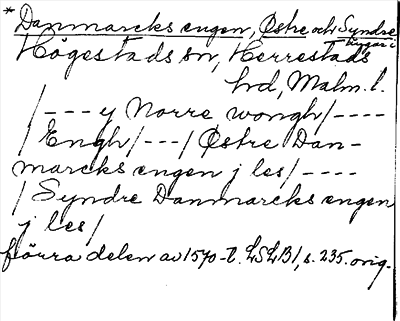 * Danmarcks engen, Østre och Syndre
Högestads sn, Herrestads
hd, Malm. l.
/ - - - y Norre wongh / - - - -
/ Engh / - - - / Østre Dan-
marcks engen j les / - - - -
/ Syndre Danmarcks engen
j les /
förra delen av 1570-t. LSLB1, s. 235. orig.